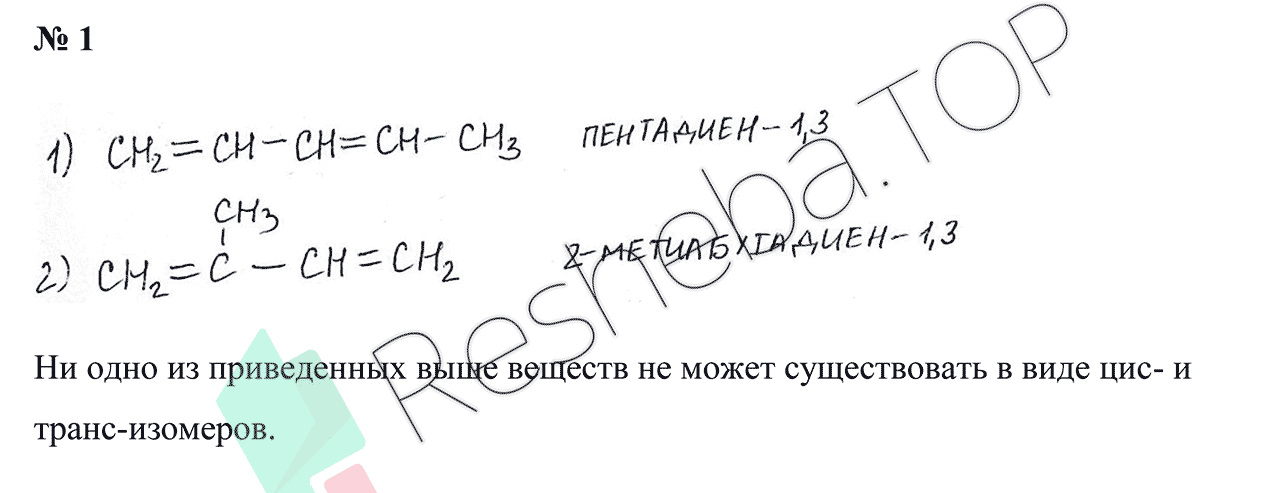 № 1
1) CH₂=CH–CH=CH–CH₃ ПЕНТАДИЕН–1,3
CH₃
2) CH₂=C–CH=CH₂ 2-МЕТИЛБУТАДИЕН–1,3
Ни одно из приведенных выше веществ не может существовать в виде цис- и
транс-изомеров.
Resheba.TOP